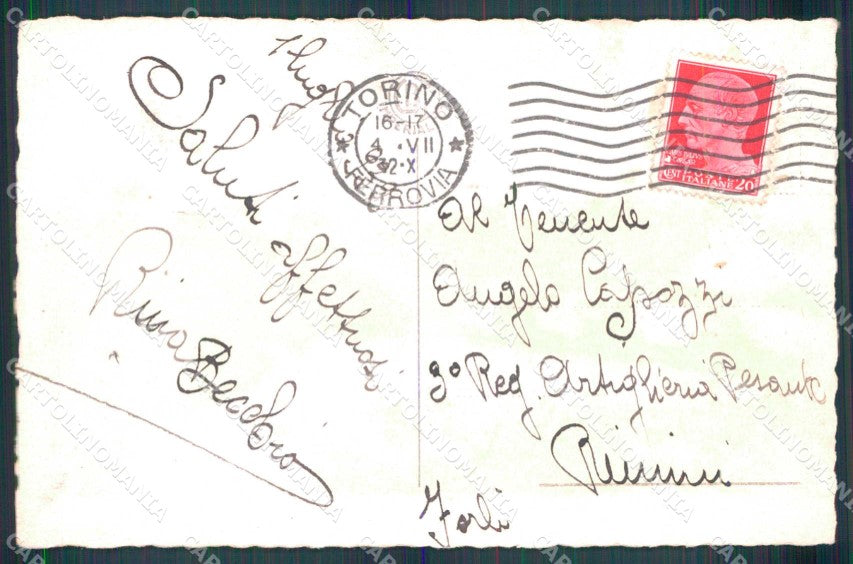 1 luglio
932
Saluti affettuosi
Rina
TORINO
16-17
4 · VII
932·X
FERROVIA
POSTE
ITALIANE
CENT 20
Al Tenente
Angelo Capozzi
3° Reg. Artiglieria Pesante
Rimini
Forlì
CARTOLINOMANIA